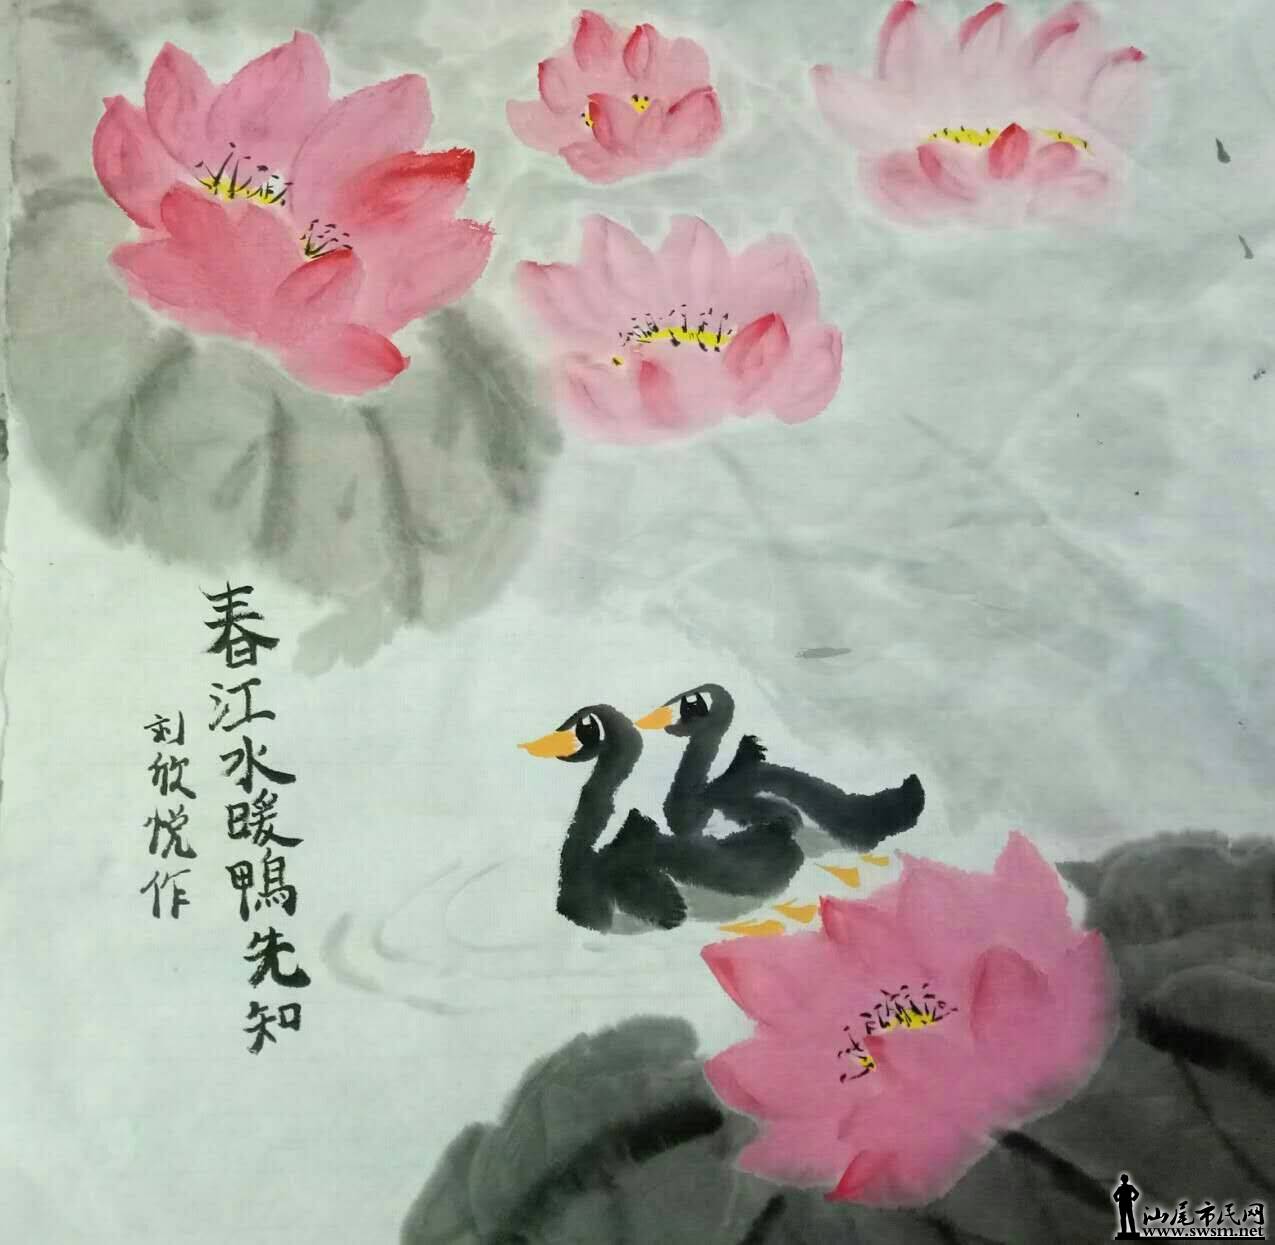 春江水暖鴨先知
刘欣悦作
汕尾市民网
www.swsm.net